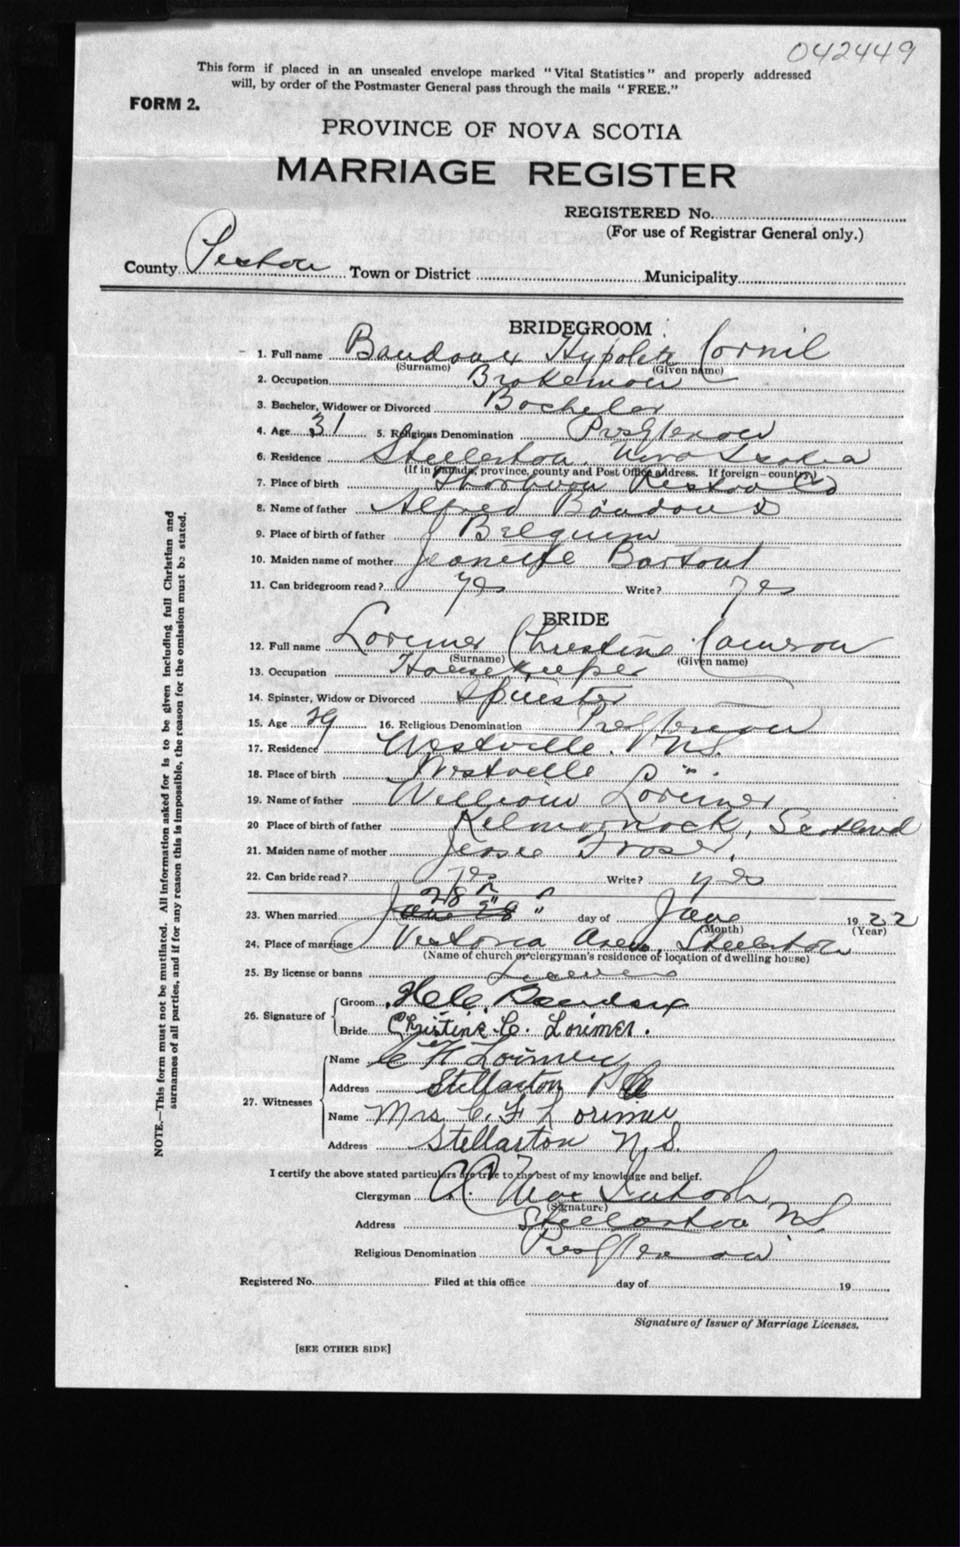 042449
This form if placed in an unsealed envelope marked "Vital Statistics" and properly addressed
will, by order of the Postmaster General pass through the mails "FREE."
FORM 2.
PROVINCE OF NOVA SCOTIA
MARRIAGE REGISTER
REGISTERED No.
(For use of Registrar General only.)
County Pictou Town or District Municipality
BRIDEGROOM
1. Full name Baudoux Hypolite Cornil
(Surname) (Given name)
2. Occupation Brakeman
3. Bachelor, Widower or Divorced Bachelor
4. Age 31 5. Religious Denomination Presbyterian
6. Residence Stellarton, Nova Scotia
(If in Canada, province, county and Post Office address. If foreign—country)
7. Place of birth Thorburn Pictou Co
8. Name of father Alfred Baudoux
9. Place of birth of father Belgium
10. Maiden name of mother Jeanette
11. Can bridegroom read? yes Write? yes
BRIDE
12. Full name Lorimer Christine Cameron
(Surname) (Given name)
13. Occupation Housekeeper
14. Spinster, Widow or Divorced Spinster
15. Age 29 16. Religious Denomination Presbyterian
17. Residence Westville. N.S.
18. Place of birth Westville " "
19. Name of father William Lorimer
20 Place of birth of father Kilmarnock, Scotland
21. Maiden name of mother Jessie Fraser,
22. Can bride read? yes Write? yes
23. When married 28th day of June 1922
(Month) (Year)
24. Place of marriage Victoria Ave, Stellarton
(Name of church or clergyman's residence of location of dwelling house)
25. By license or banns License
26. Signature of
Groom H. C. Baudoux
Bride Christine C. Lorimer.
27. Witnesses
Name Lorimer
Address Stellarton
Name Mrs. C. F Lorimer
Address Stellarton N.S.
I certify the above stated particulars are true to the best of my knowledge and belief.
Clergyman
(Signature)
Address Stellarton N.S.
Religious Denomination Presbyterian
Registered No. Filed at this office day of 19
Signature of Issuer of Marriage Licenses.
[SEE OTHER SIDE]
NOTE.—This form must not be mutilated. All information asked for is to be given including full Christian and
surnames of all parties, and if for any reason this is impossible, the reason for the omission must be stated.